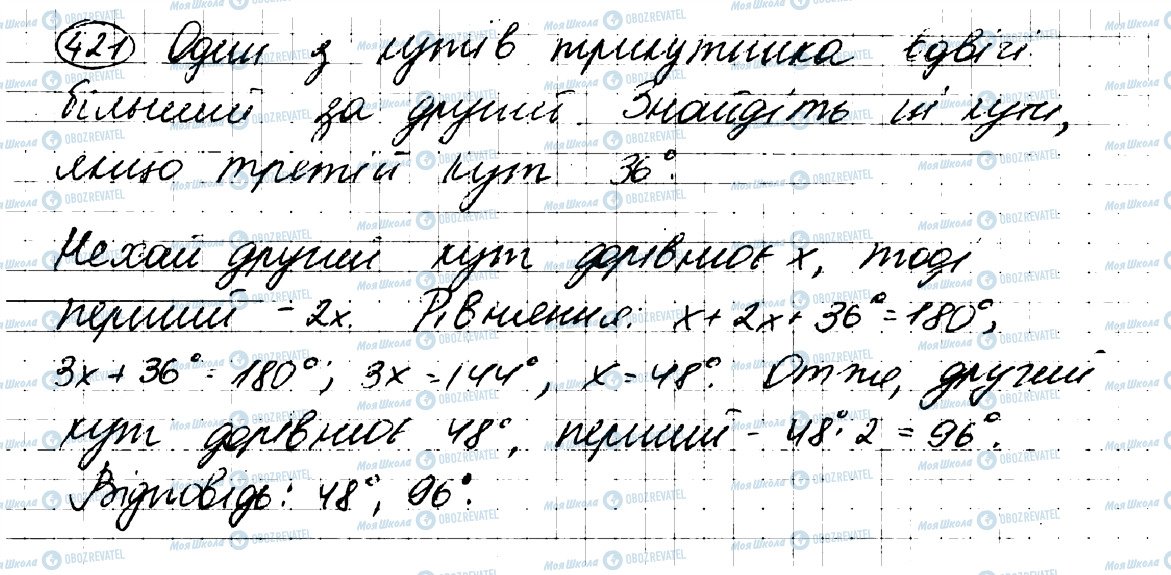 421 Один з кутів трикутника вдвічі
більший за другий. Знайдіть ці кути,
якщо третій кут 36°.
Нехай другий кут дорівнює x, тоді
перший - 2x. Рівняння: x + 2x + 36° = 180°,
3x + 36° = 180°; 3x = 144°, x = 48°. Отже, другий
кут дорівнює 48°, перший - 48° · 2 = 96°.
Відповідь: 48°, 96°.
Моя Школа OBOZREVATEL